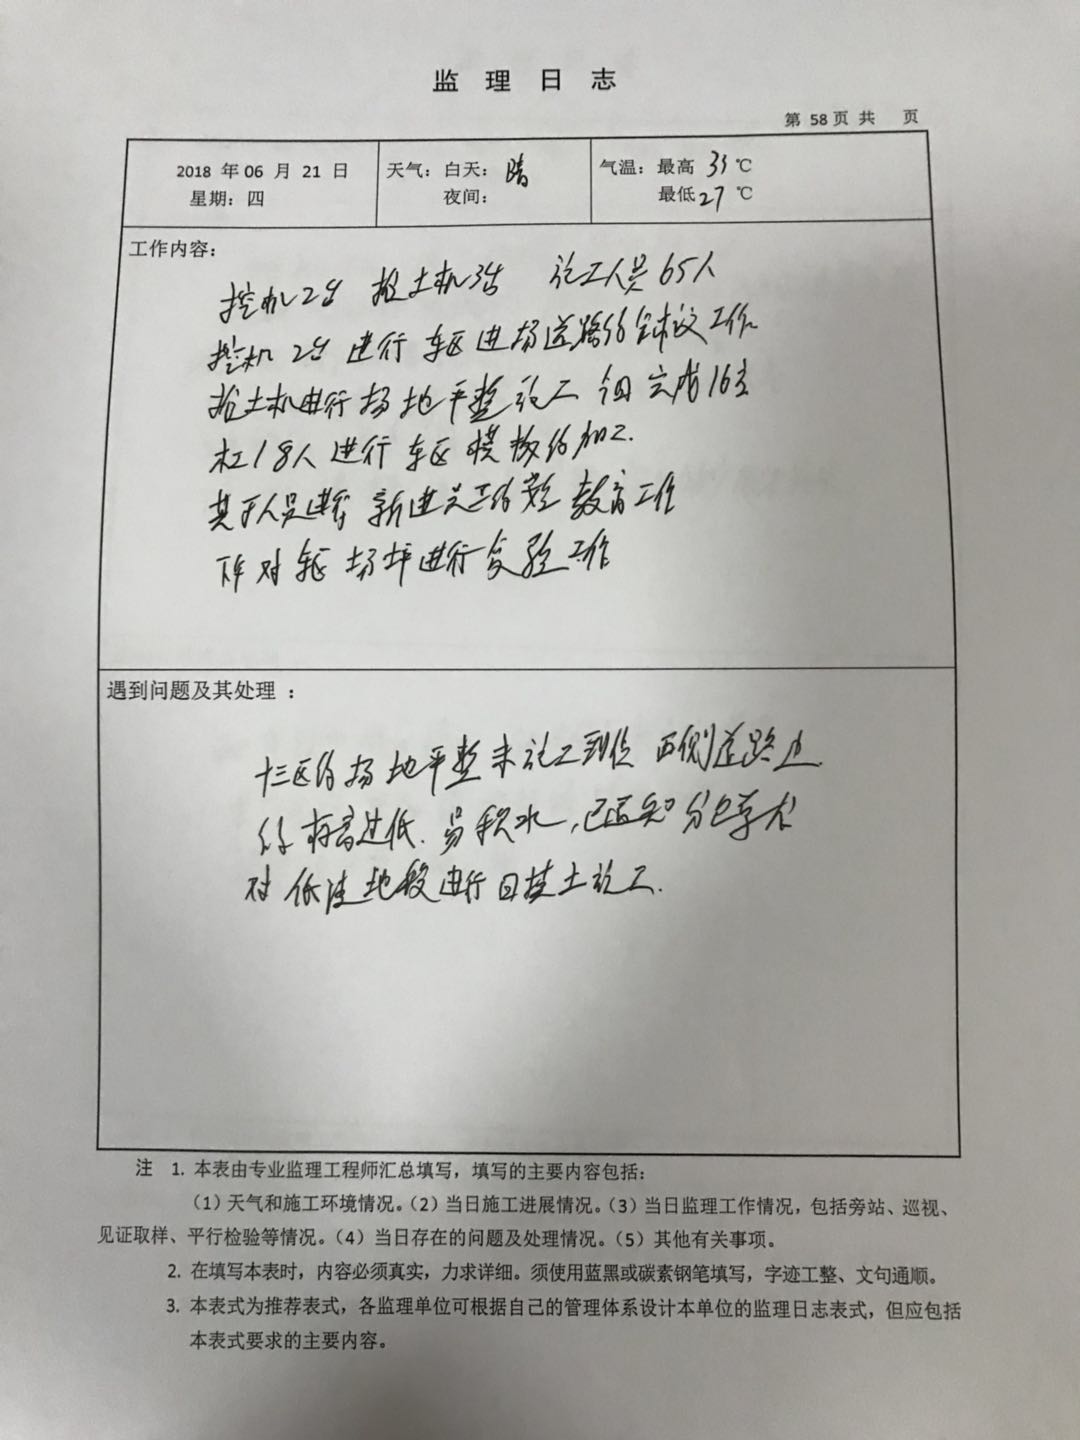 监 理 日 志
第 58 页 共 页
2018 年 06 月 21 日
星期：四
天气：白天：晴
夜间：
气温：最高 33 ℃
最低 27 ℃
工作内容：
挖机2台 推土机3台 施工人员65人
挖机 2台 进行 车区 进场道路的 工作
推土机进行 场地平整施工 今日 完成16
木工18人 进行 车区 模板的加工.
其于人员进行 新进员工的安全 教育工作
下午对 车区 场坪进行复验工作
遇到问题及其处理 ：
十三区的场地平整未施工到位 西侧道路边
标高过低. 易积水，已通知 分包单位
对 低洼地段进行回填土施工.
注 1. 本表由专业监理工程师汇总填写，填写的主要内容包括：
（1）天气和施工环境情况。（2）当日施工进展情况。（3）当日监理工作情况，包括旁站、巡视、
见证取样、平行检验等情况。（4）当日存在的问题及处理情况。（5）其他有关事项。
2. 在填写本表时，内容必须真实，力求详细。须使用蓝黑或碳素钢笔填写，字迹工整、文句通顺。
3. 本表式为推荐表式，各监理单位可根据自己的管理体系设计本单位的监理日志表式，但应包括
本表式要求的主要内容。